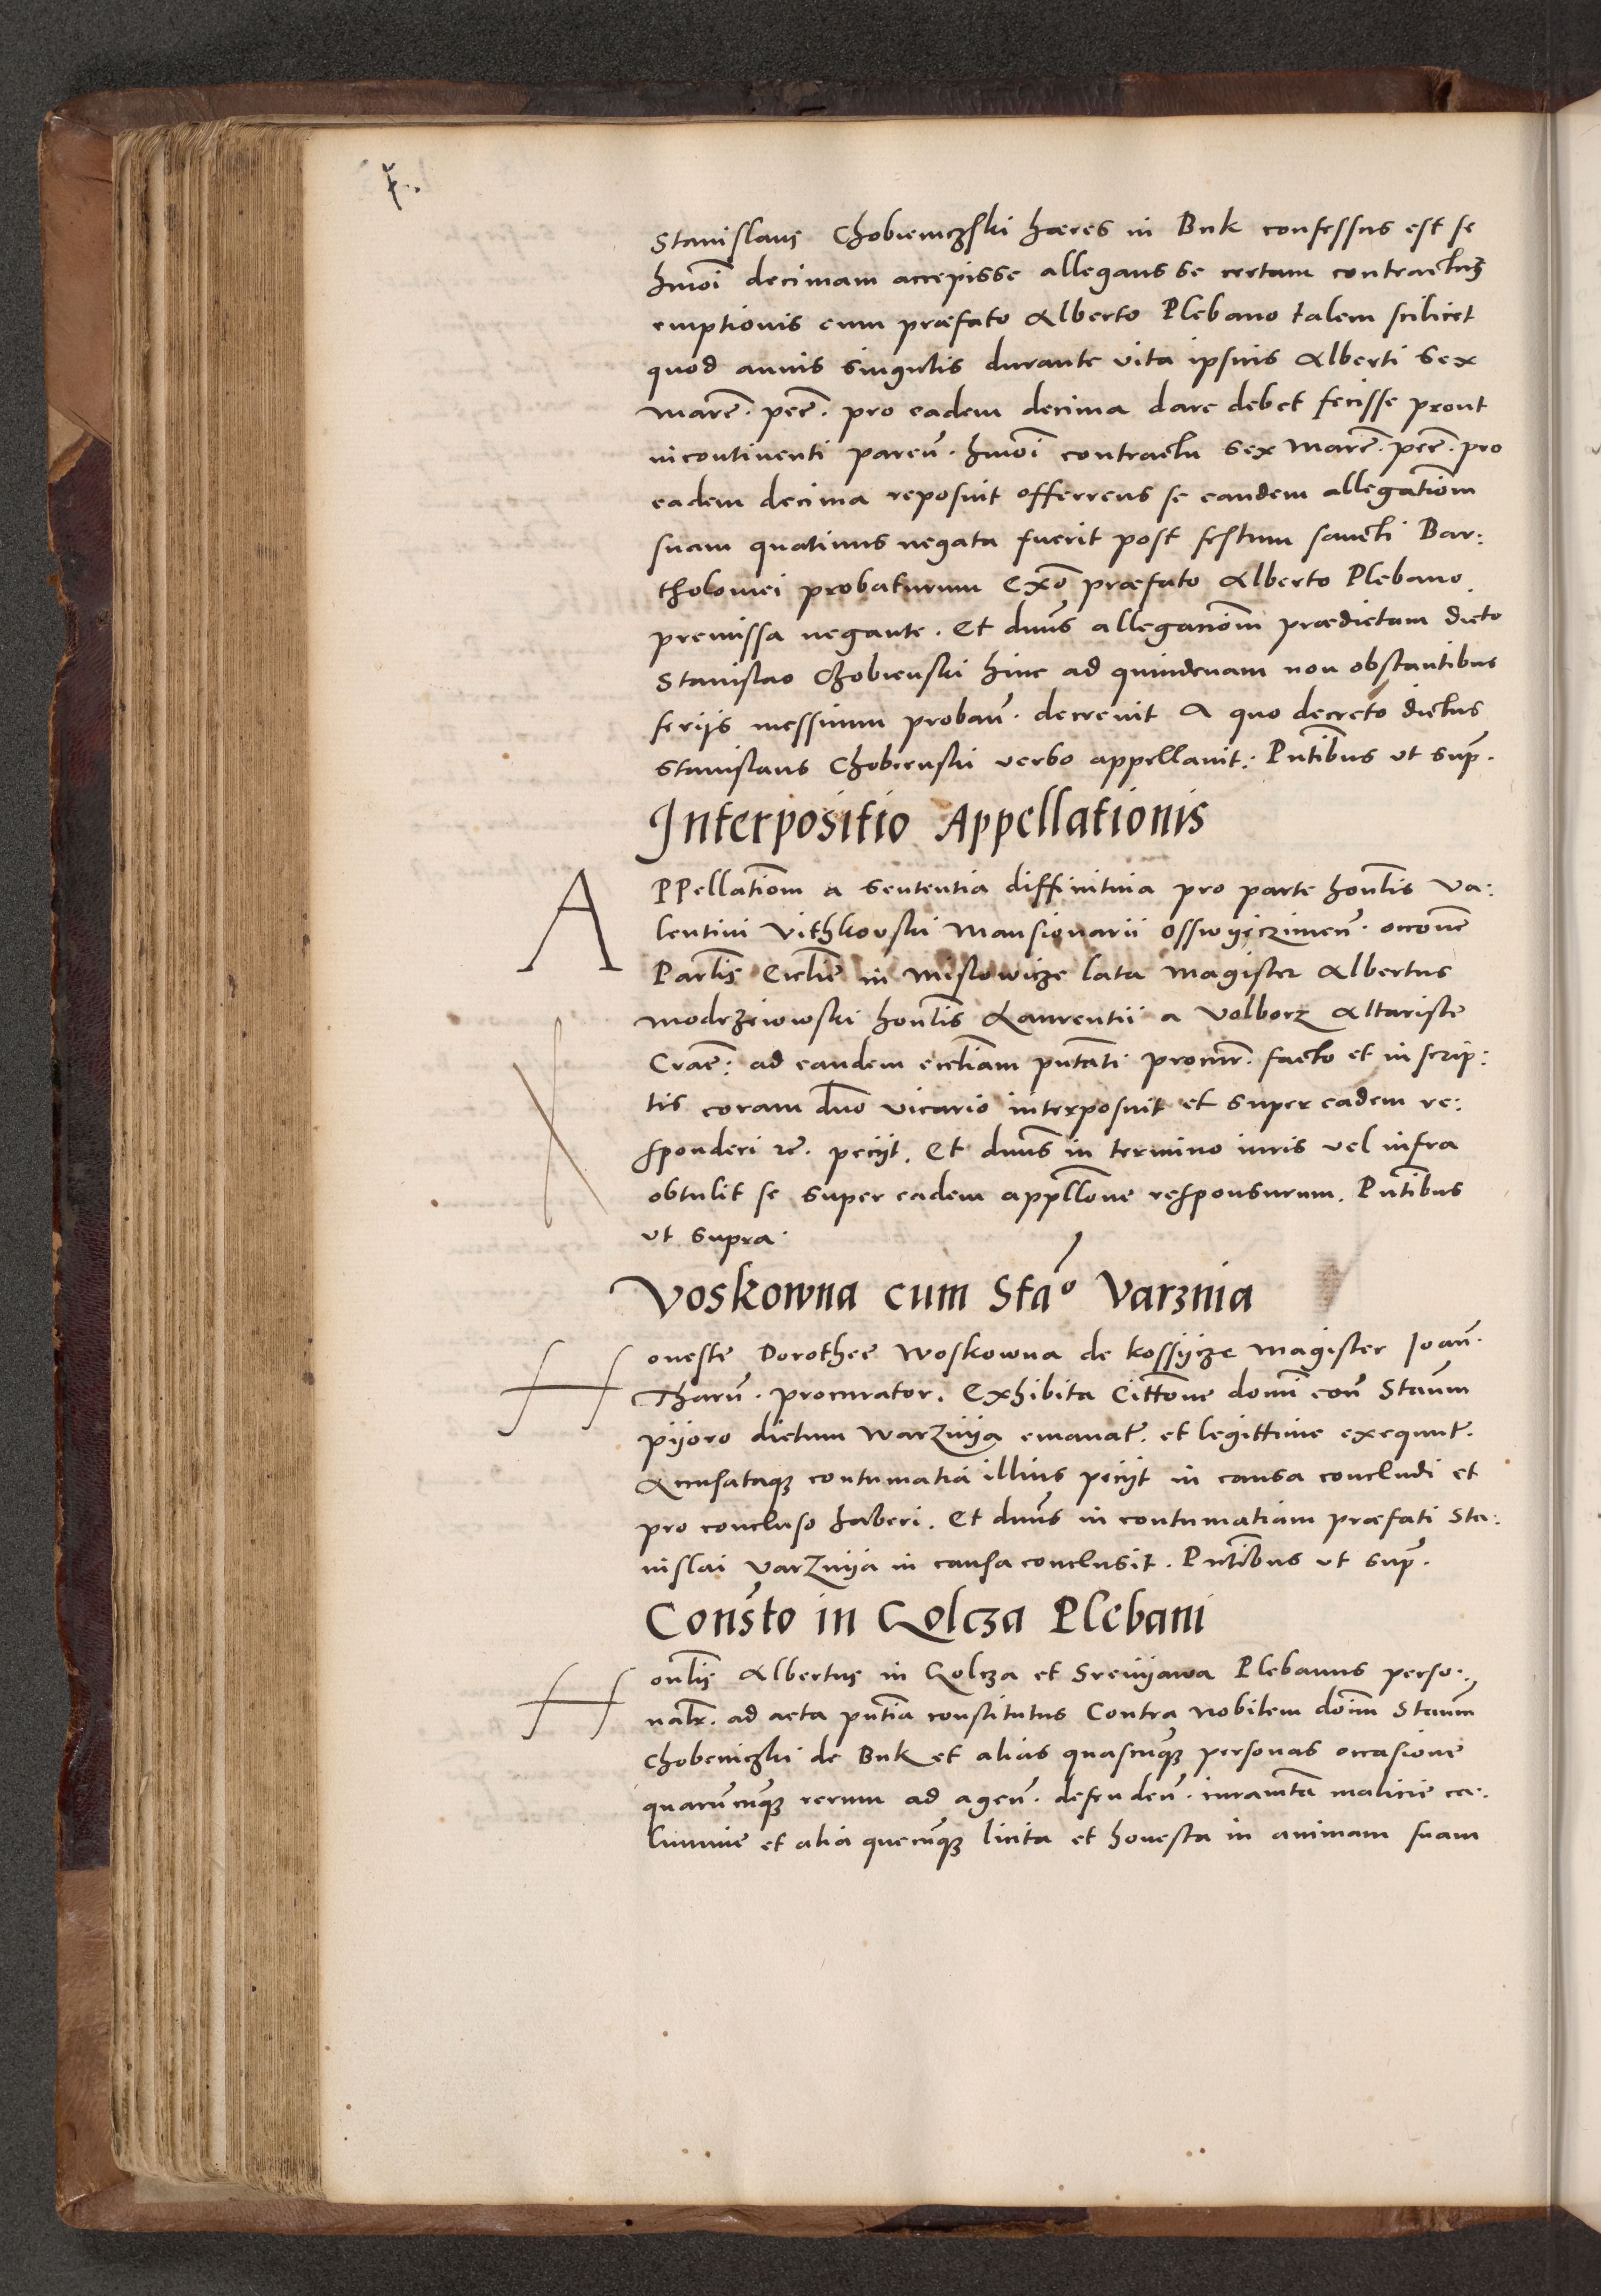 Stanislaus Chobiemczski hæres in Buk confessus est se
hmoi decimam accepisse allegans se certum contractum
emptionis cum præfato Alberto Plebano talem scilicet
quod annis singulis durante vita ipsius Alberti sex
marc̃. pec̃. pro eadem decima dare debet fecisse prout
incontinenti pareñ. hmõi contractu sex marc̃. pec̃. pro
eadem decima reposuit offerrens se eandem allegatiõm
suam quatinus negata fuerit post festum sancti Bar:
tholomei probaturum Exõ præfato Alberto Plebano
premissa negante. Et dnũs allegationẽm prædictam dicto
Stanislao Chobienski hinc ad quindenam non obstantibus
ferijs messium probañ. decrevit A quo decreto dictus
Stanislaus Chobienski verbo appellavit: Pñtibus ut sup̃.
Interpositio Appellationis
APPellatiõm a sententia diffinitiva pro parte honl̃is Va:
lentini Vithkovski Mansionarii Osswyeczimeñ. occoñe
Parl̃is Eccliẽ in Mislowicze lata Magister Albertus
Modrzeiowski honl̃is Laurentii a Volborz Altariste
Crac̃: ad eandem eccl̃iam pñtati procur̃. facto et in scrip:
tis coram dño vicario interposuit et super eadem re:
sponderi rc̃. peciit. Et dnũs in termino iuris vel infra
obtulit se super eadem appll̃one responsurum. Pñtibus
ut supra.
Voskowna cum Staº Varznia
Honeste Dorothee Woskowna de Kossycze Magister Ioañ.
Tharñ. procurator. Exhibita Cittõne domĩ coñ Stañm
pijoro dictum Warznija emanat̃. et legittime exequut̃.
Accusataque contumatia illius peciit in causa concludi et
pro concluso haberi. Et dnũs in contumatiam præfati Sta:
nislai Varznija in causa conclusit. Pñtibus ut sup̃.
Consto in Golcza Plebani
Honl̃is Albertus in Golcza et Sreniawa Plebanus perso:
nalr̃. ad acta pñtia constitutus Contra nobilem domĩn Stañm
Chobeniczki de Buk et alias quascunque personas occasione
quarũcunque rerum ad ageñ. defendeñ. iuramt̃a malicie ca:
lumnie et alia quecũque licita et honesta in animam suam